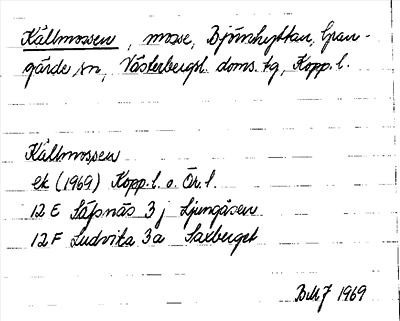 Källmossen, mosse, Björnhyttan, Gran-
gärde sn, Västerbergsl. doms. tg, Kopp. l.
Källmossen
ek (1969) Kopp. l. o. Ör. l.
12 E Säfsnäs 3 j Ljungåsen
12 F Ludvika 3 a Saxberget
1969